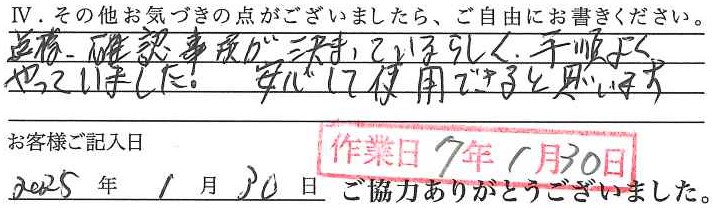 Ⅳ．その他お気づきの点がございましたら、ご自由にお書きください。
点検、確認事項が決まっているらしく、手順よく
やっていました! 安心して使用できると思います
お客様ご記入日
作業日 7年1月30日
2025年1月30日 ご協力ありがとうございました。